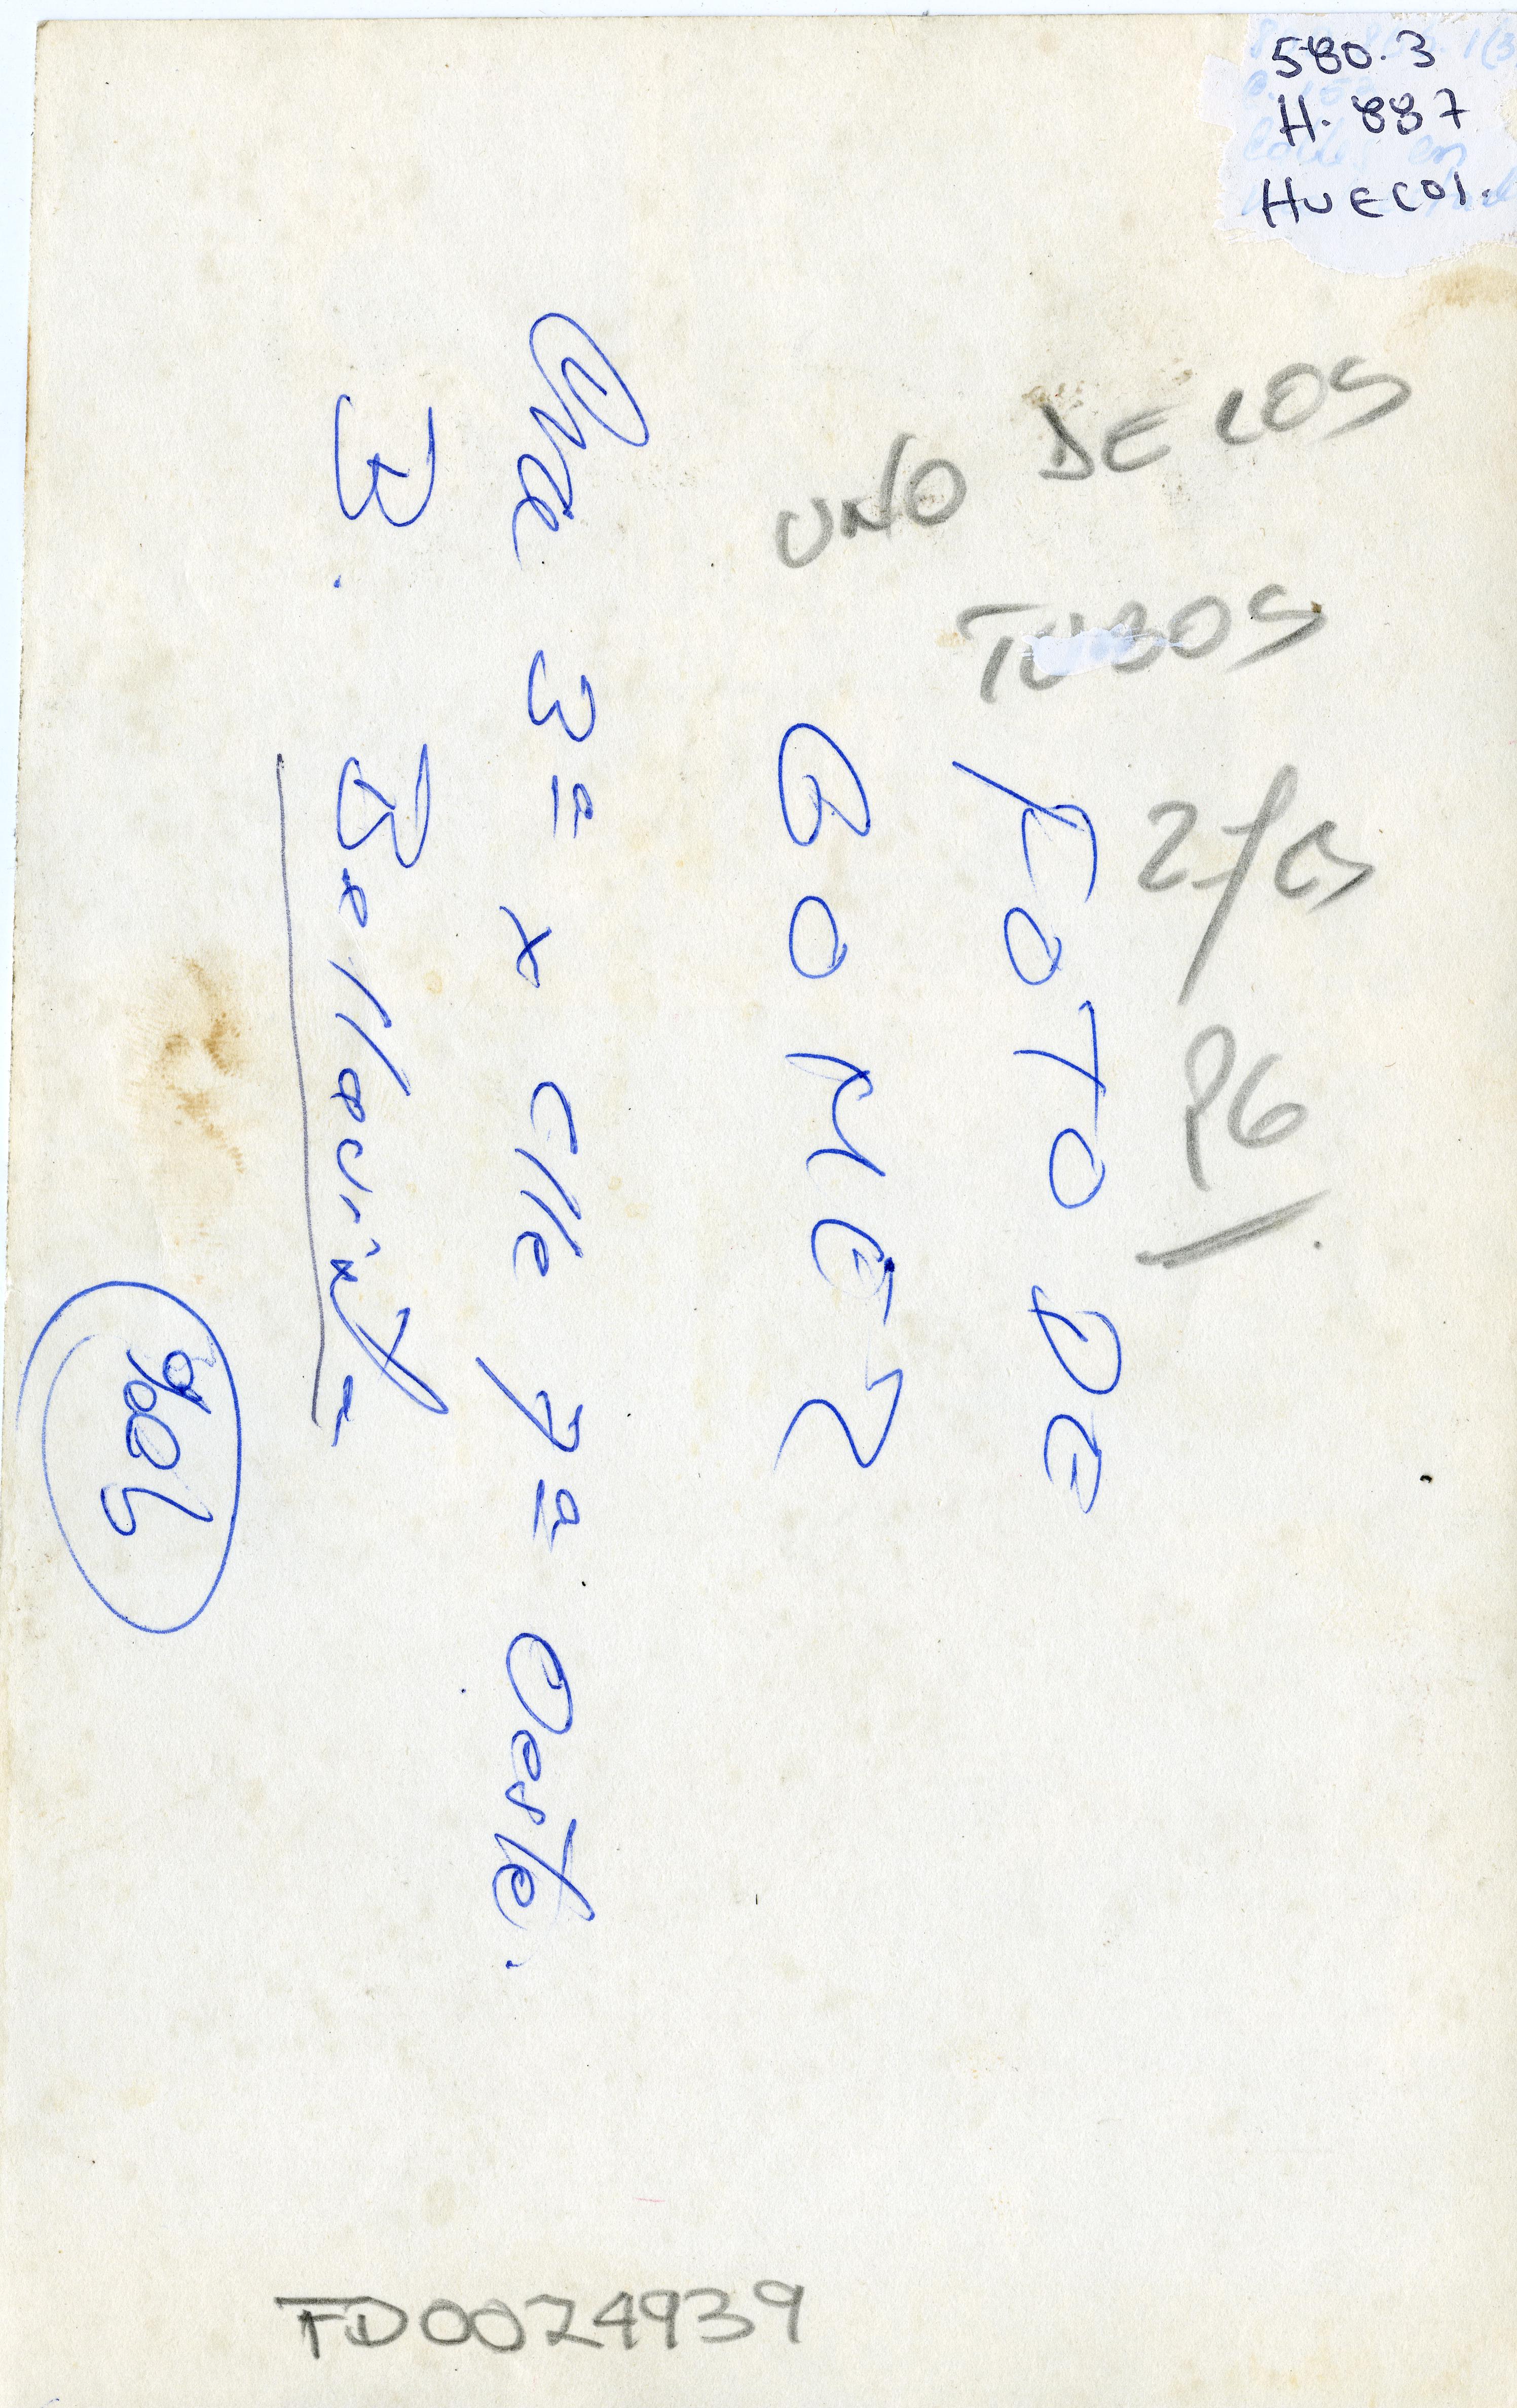 580.3
H. 887
HUECOS.
UNO DE LOS
TUBOS
2/cs
P6
FOTO DE
GOMER
Cra 3ª x Clle 7ª Oeste.
B. Bellavista
FD0024939